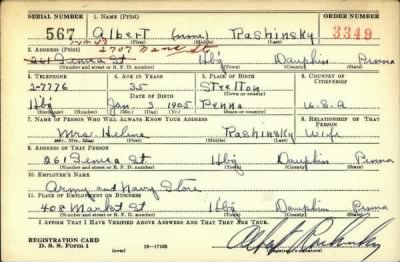 SERIAL NUMBER 1. NAME (Print) ORDER NUMBER
567 Albert (none) Rashinsky 3349
(First) (Middle) (Last)
2. ADDRESS (Print) 2707
261 Seneca St Hbg Dauphin Penna
(Number and street or R. F. D. number) (Town) (County) (State)
3. TELEPHONE 4. AGE IN YEARS 5. PLACE OF BIRTH 6. COUNTRY OF CITIZENSHIP
2-7776 35 Steelton
DATE OF BIRTH (Town or county)
Hbg Jan 3 1905 Penna U.S.A
(Exchange) (Number) (Mo.) (Day) (Yr.) (State or country)
7. NAME OF PERSON WHO WILL ALWAYS KNOW YOUR ADDRESS 8. RELATIONSHIP OF THAT PERSON
Mrs. Helene Rashinsky Wife
(Mr., Mrs., Miss) (First) (Middle) (Last)
9. ADDRESS OF THAT PERSON
261 Seneca St Hbg Dauphin Penna
(Number and street or R. F. D. number) (Town) (County) (State)
10. EMPLOYER'S NAME
Army and Navy Store
11. PLACE OF EMPLOYMENT OR BUSINESS
408 Market St Hbg Dauphin Penna
(Number and street or R. F. D. number) (Town) (County) (State)
I AFFIRM THAT I HAVE VERIFIED ABOVE ANSWERS AND THAT THEY ARE TRUE.
REGISTRATION CARD
D. S. S. Form 1 (over) 16-17105 Albert Rashinsky
(Registrant's signature)